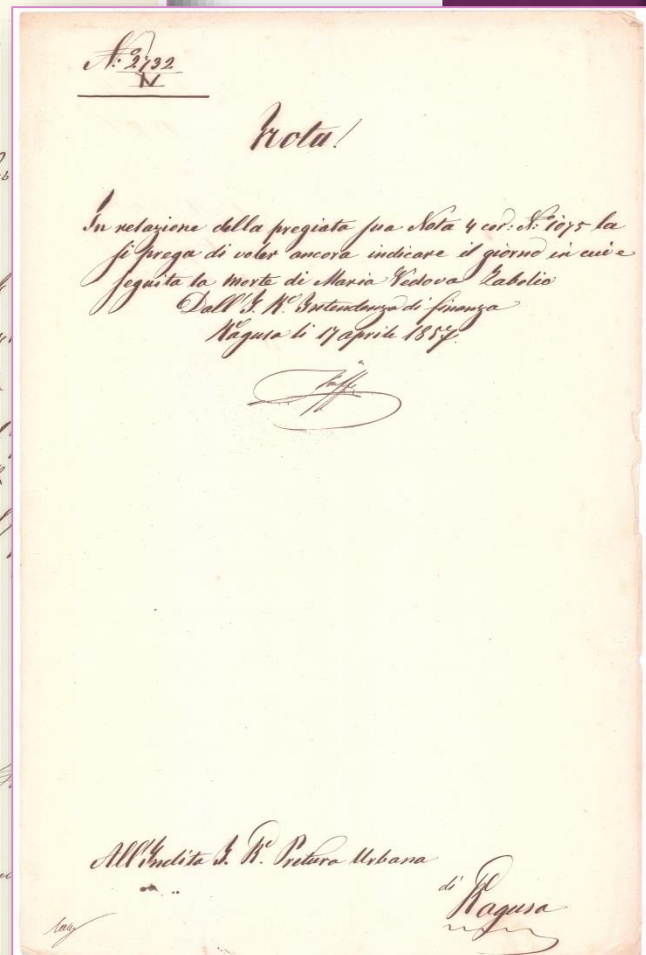 N.º 2732
IV
Nota!
In relazione della pregiata sua Nota 4 cor: N.º 1075 la
si prega di voler ancora indicare il giorno in cui e
seguita la morte di Maria Vedova Zabolio
Dall' I. R. Intendenza di finanza
Ragusa li 17 aprile 1857.
All' Inclita I. R. Pretura Urbana
di
Ragusa